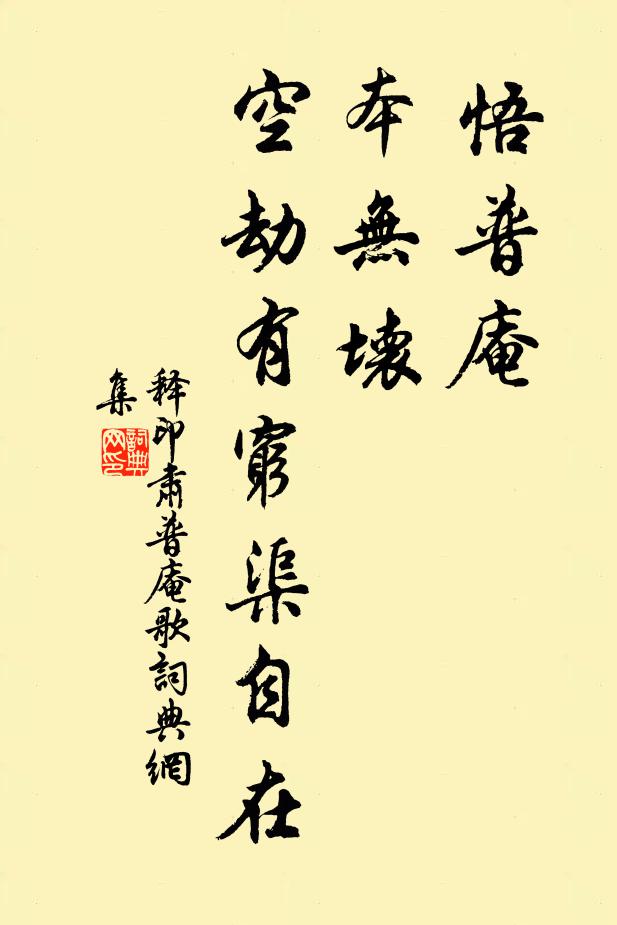 悟普庵
本無壞
空劫有窮渠自在
释印肃普庵歌詞典網
集
詞典
网印